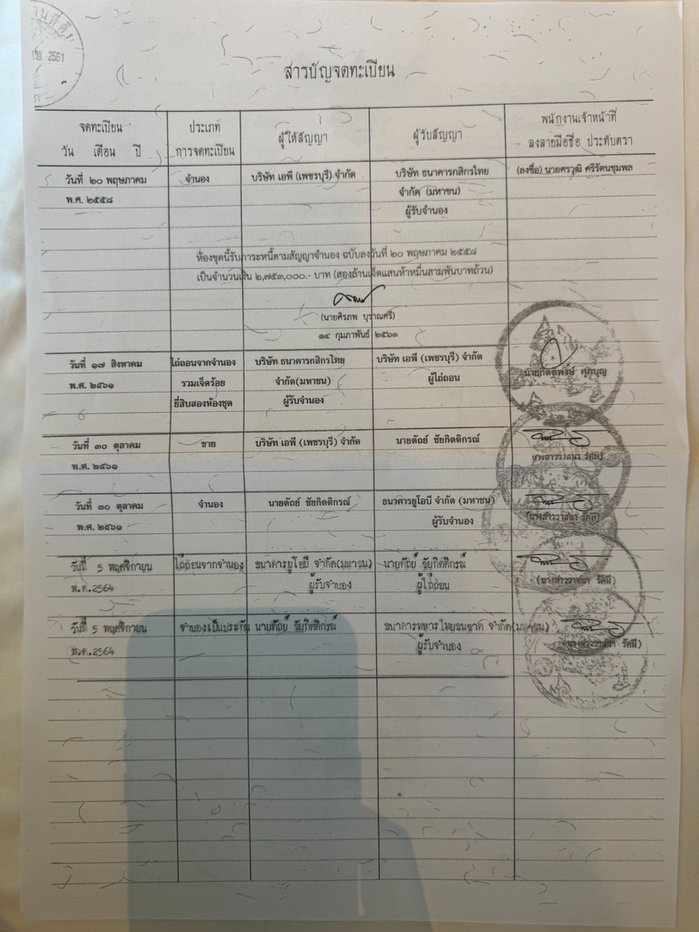 พ. 2561
สารบัญจดทะเบียน
จดทะเบียน
วัน เดือน ปี
ประเภท
การจดทะเบียน
ผู้ให้สัญญา
ผู้รับสัญญา
พนักงานเจ้าหน้าที่
ลงลายมือชื่อ ประทับตรา
วันที่ ๒๐ พฤษภาคม
พ.ศ. ๒๕๕๘
จำนอง
บริษัท เอพี (เพชรบุรี) จำกัด
บริษัท ธนาคารกสิกรไทย
จำกัด (มหาชน)
ผู้รับจำนอง
(ลงชื่อ) นายศรวุฒิ ศรีรัตนชุมพล
ห้องชุดนี้รับภาระหนี้ตามสัญญาจำนอง ฉบับลงวันที่ ๒๐ พฤษภาคม ๒๕๕๘
เป็นจำนวนเงิน ๒,๗๕๓,๐๐๐.- บาท (สองล้านเจ็ดแสนห้าหมื่นสามพันบาทถ้วน)
(นายศิรภพ บุราณศรี)
๑๔ กุมภาพันธ์ ๒๕๖๑
วันที่ ๑๗ สิงหาคม
พ.ศ. ๒๕๖๑
ไถ่ถอนจากจำนอง
รวมเจ็ดร้อย
ยี่สิบสองห้องชุด
บริษัท ธนาคารกสิกรไทย
จำกัด(มหาชน)
ผู้รับจำนอง
บริษัท เอพี (เพชรบุรี) จำกัด
ผู้ไถ่ถอน
วันที่ ๓๐ ตุลาคม
พ.ศ. ๒๕๖๑
ขาย
บริษัท เอพี (เพชรบุรี) จำกัด
นายดัถย์ ชัยกิตติกรณ์
นางสาววาสนา รัศมี
วันที่ ๓๐ ตุลาคม
พ.ศ. ๒๕๖๑
จำนอง
นายดัถย์ ชัยกิตติกรณ์
ธนาคารยูโอบี จำกัด (มหาชน)
ผู้รับจำนอง
(นางสาววาสนา รัศมี)
วันที่ 5 พฤศจิกายน
พ.ศ.2564
ไถ่ถอนจากจำนอง
ธนาคารยูโอบี จำกัด(มหาชน)
ผู้รับจำนอง
นายดัถย์ ชัยกิตติกรณ์
ผู้ไถ่ถอน
(นางสาววาสนา รัศมี)
วันที่ 5 พฤศจิกายน
พ.ศ.2564
จำนองเป็นประกัน
นายดัถย์ ชัยกิตติกรณ์
ธนาคารทหารไทยธนชาต จำกัด(มหาชน)
ผู้รับจำนอง
(นางสาววาสนา รัศมี)